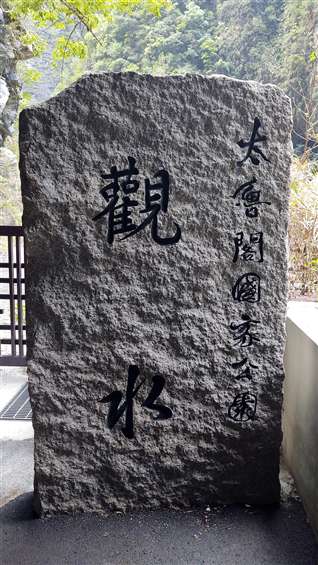 太魯閣國家公園
觀水